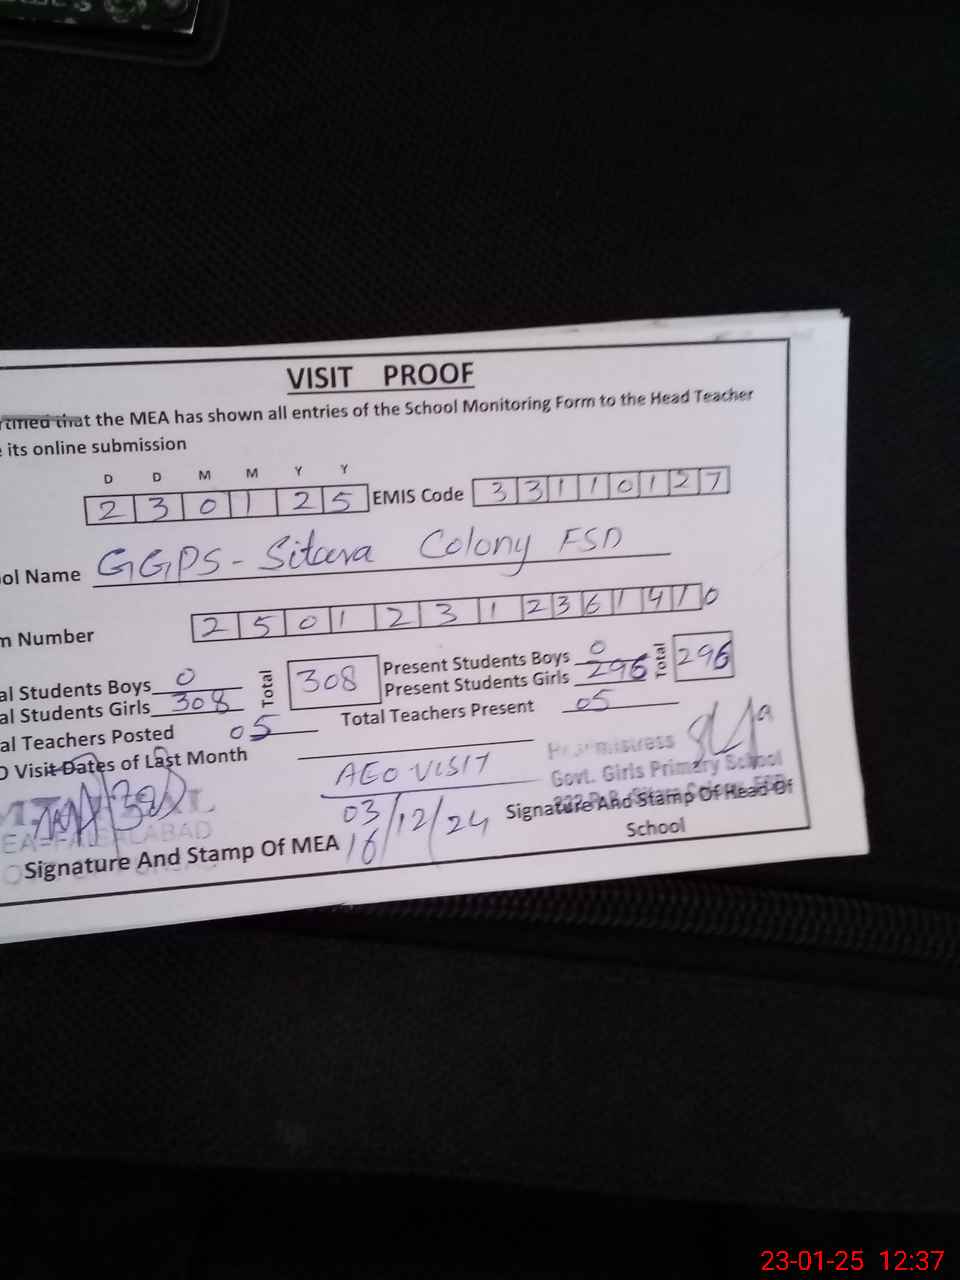 VISIT PROOF
rtified that the MEA has shown all entries of the School Monitoring Form to the Head Teacher
e its online submission
D D M M Y Y
2 3 0 1 2 5 EMIS Code 3 3 1 1 0 1 2 7
ool Name GGPS - Sitara Colony FSD
m Number 2 5 0 1 2 3 1 2 3 6 1 4 1 0
al Students Boys 0 Total 308 Present Students Boys 0 Total 296
al Students Girls 308 Present Students Girls 296
al Teachers Posted 05 Total Teachers Present 05
O Visit Dates of Last Month
AEO VISIT
03/12/24
16
Headmistress
Govt. Girls Primary School
EA-FAISALABAD
Signature And Stamp Of MEA
Signature And Stamp Of Head Of
School
23-01-25 12:37